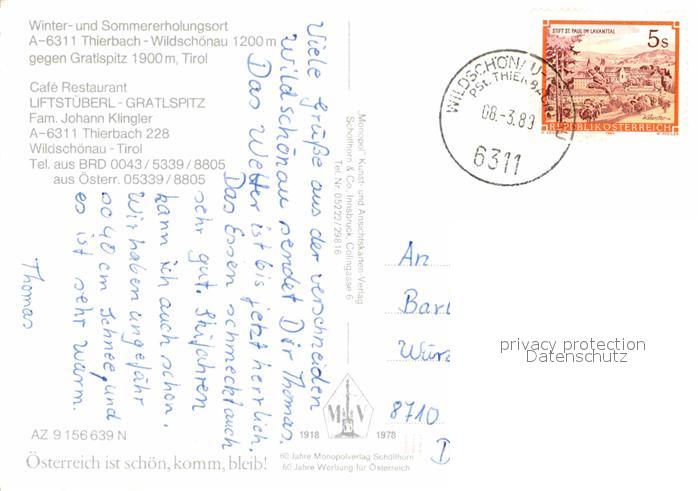 Winter- und Sommererholungsort
A-6311 Thierbach - Wildschönau 1200 m
gegen Gratlspitz 1900 m, Tirol
Café Restaurant
LIFTSTÜBERL - GRATLSPITZ
Fam. Johann Klingler
A-6311 Thierbach 228
Wildschönau - Tirol
Tel. aus BRD 0043 / 5339 / 8805
aus Österr. 05339 / 8805
Viele Grüße aus der verschneiden
Wildschönau sendet Dir Thomas.
Das Wetter ist bis jetzt herrlich.
Das Essen schmeckt auch
sehr gut. Skifahren
kann ich auch schon.
Wir haben ungefähr
so 40 cm Schnee, und
es ist sehr warm.
Thomas
AZ 9 156 639 N
Österreich ist schön, komm, bleib!
„Monopol" Kunst- und Ansichtskarten-Verlag
Schöllhorn & Co. Innsbruck, Colingasse 6
Tel. Nr. 05222/29816
M V
1918 1978
60 Jahre Monopolverlag Schöllhorn
60 Jahre Werbung für Österreich
STIFT ST. PAUL IM LAVANTTAL
5 S
REPUBLIK ÖSTERREICH
WILDSCHÖNAU
08.-3.89
6311
An
Bar
Würz
8710
D
privacy protection
Datenschutz